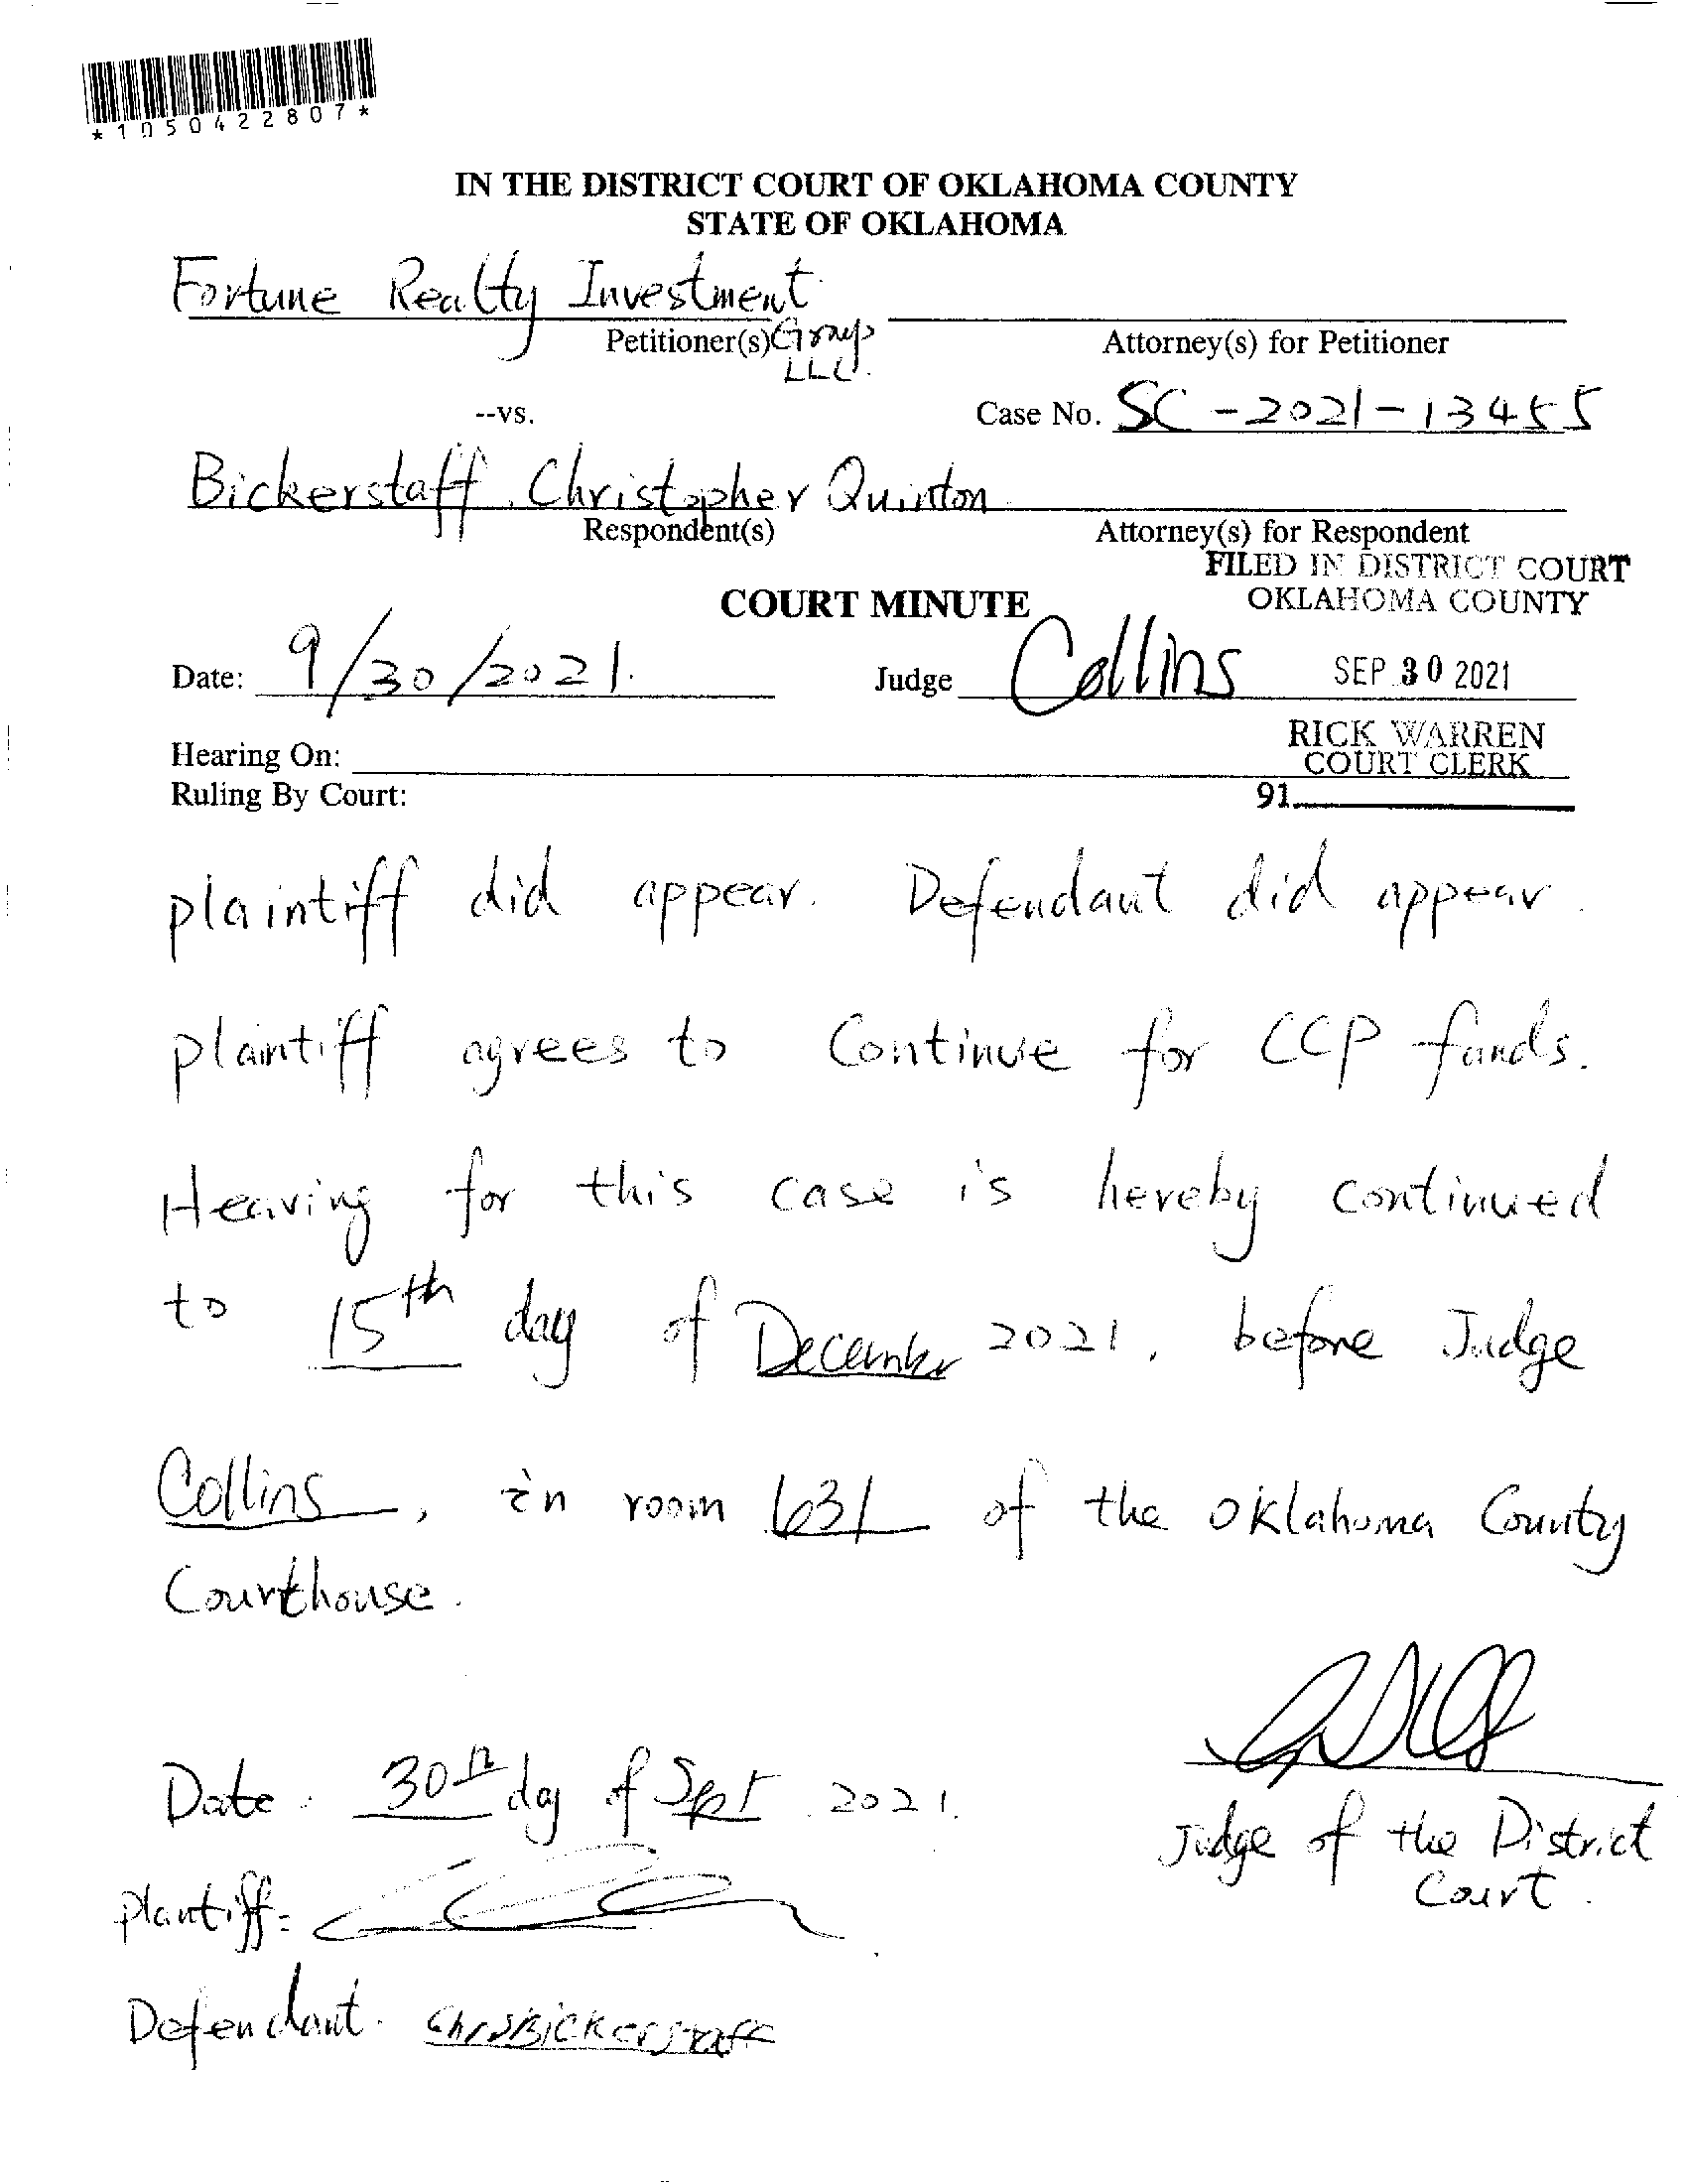 *1050422807*
IN THE DISTRICT COURT OF OKLAHOMA COUNTY
STATE OF OKLAHOMA
Fortune Realty Investment
Petitioner(s) Group
LLC.
Attorney(s) for Petitioner
--vs.
Case No. SC-2021-13455
Bickerstaff, Christopher Quinton
Respondent(s)
Attorney(s) for Respondent
FILED IN DISTRICT COURT
OKLAHOMA COUNTY
COURT MINUTE
Date: 9/30/2021.
Judge Collins
SEP 30 2021
RICK WARREN
COURT CLERK
Hearing On:
Ruling By Court:
91
plaintiff did appear. Defendant did appear.
plaintiff agrees to Continue for CCP funds.
Hearing for this case is hereby continued
to 15th day of December 2021, before Judge
Collins, in room 631 of the Oklahoma County
Courthouse.
Date: 30th day of Sept. 2021.
Judge of the District
Court.
Plantiff:
Defendant: Chris Bickerstaff